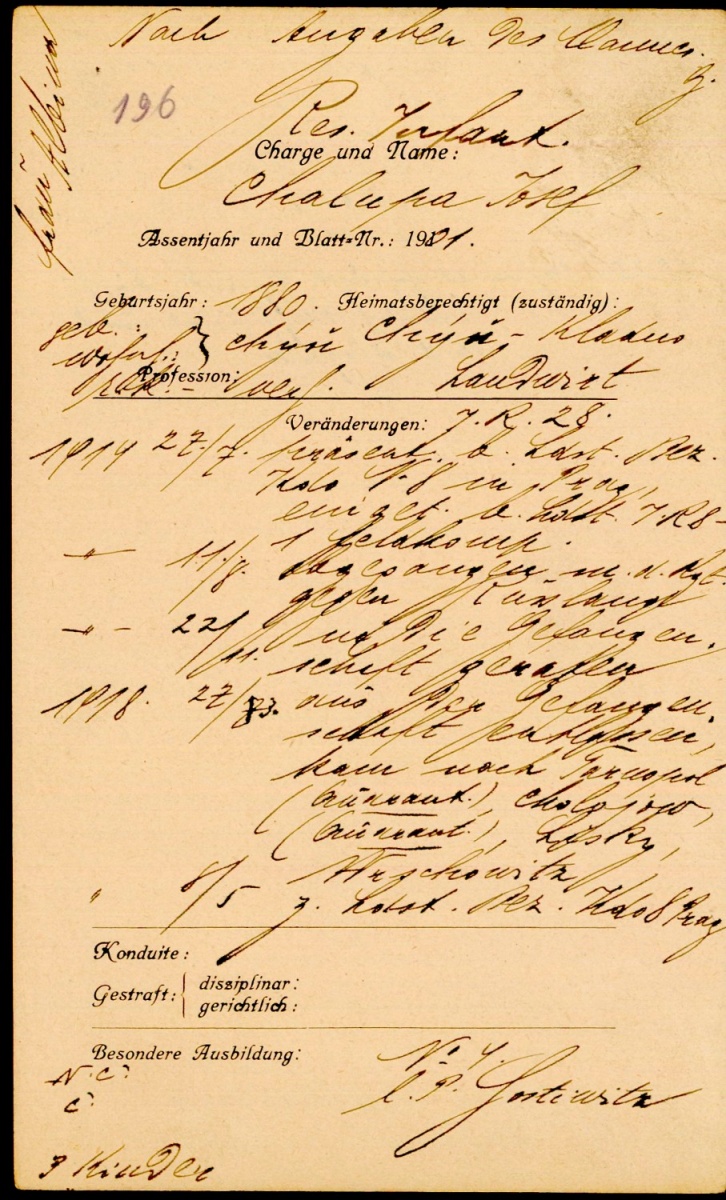 Nach Angaben des Mannes.
196
Frau
Res. Infant.
Charge und Name:
Chalupa Josef
Assentjahr und Blatt-Nr.: 1901.
Geburtsjahr: 1880. Heimatsberechtigt (zuständig):
geb.:
wohn.: } Chýň Chýň - Kladno
Profession:
rök. - verh. Landwirt
Veränderungen: J. R. 28.
1914 27/7. präsent. b. Ldst. Bez.
Kdo N. 8 in Prag,
einget. b. Ldst. J R 8 -
1 Feldkomp.
-"- 11/8. abgegangen m. d. Rgt.
gegen Russland
-"- 22/11. in die Gefangen-
schaft geraten
1918. 27/3. aus der Gefangen-
schaft entlassen,
kam nach Tarnopol
(Quarant.), Cholojow,
(Quarant.), Lisky,
Wrschowitz
" 8/5 z. Ldst. Bez. Kdo 8 Prag
Konduite:
Gestraft: { disziplinar:
gerichtlich:
Besondere Ausbildung:
N. 4.
N. C:
l. P. Hostiwitz
C:
3 Kinder